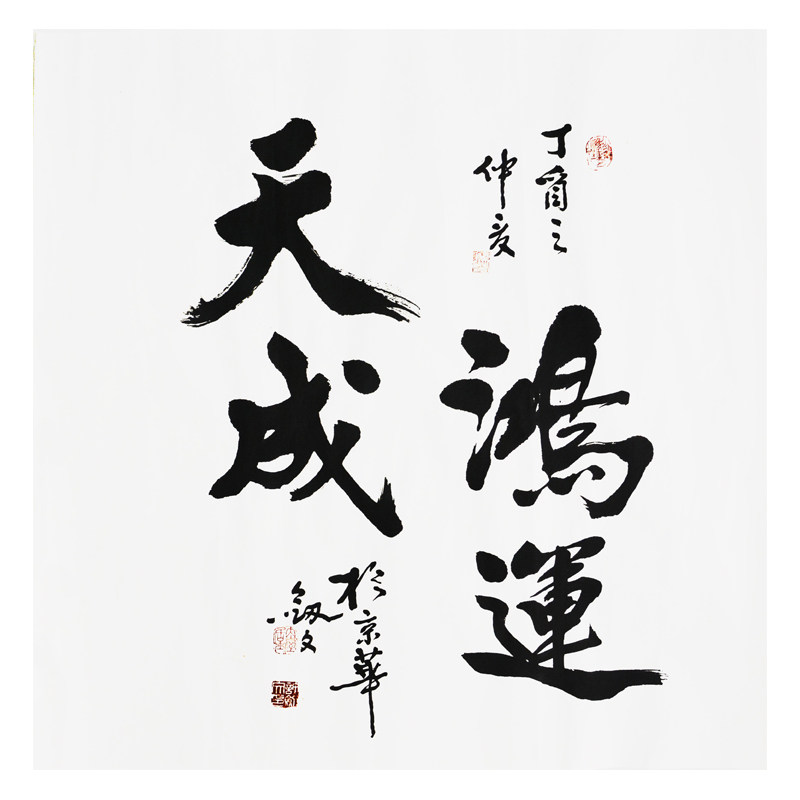 丁酉之
仲夏
鴻運
天成
於京華
文